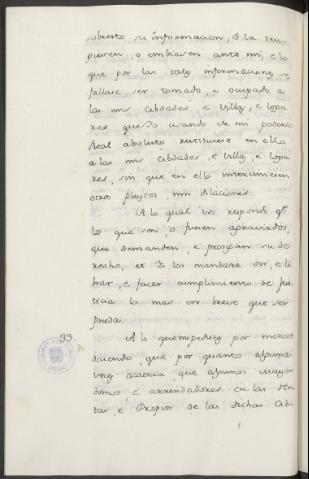 abierto su informacion, è la tru-
pieren, o embiaren ante mi, e lo
que por las tales informaciones se
fallare ser tomado, e ocupado a
las mis Cibdades, è Villas, e Loga-
res que Yo usando de mi poderio
Real absoluto restituiere en ello
a las mis Cibdades, è Villas, e Loga-
res, sin que en ello intervinieren
otros pleytos, nin dilaciones.
A lo qual vos respondi qe
los que son, o fueren agraviados,
que demanden, è prosigan su de-
recho, et Yo los mandare oir, e li-
brar, e facer cumplimiento de jus-
ticia lo mas en breve que ser
pueda.
33. A lo que me pedistes por merced
diciendo, que por quanto algunas
veces acaecia, que algunos mayor-
domos è arrendadores en las Ren-
tas, è Propios de las dichas Cib-